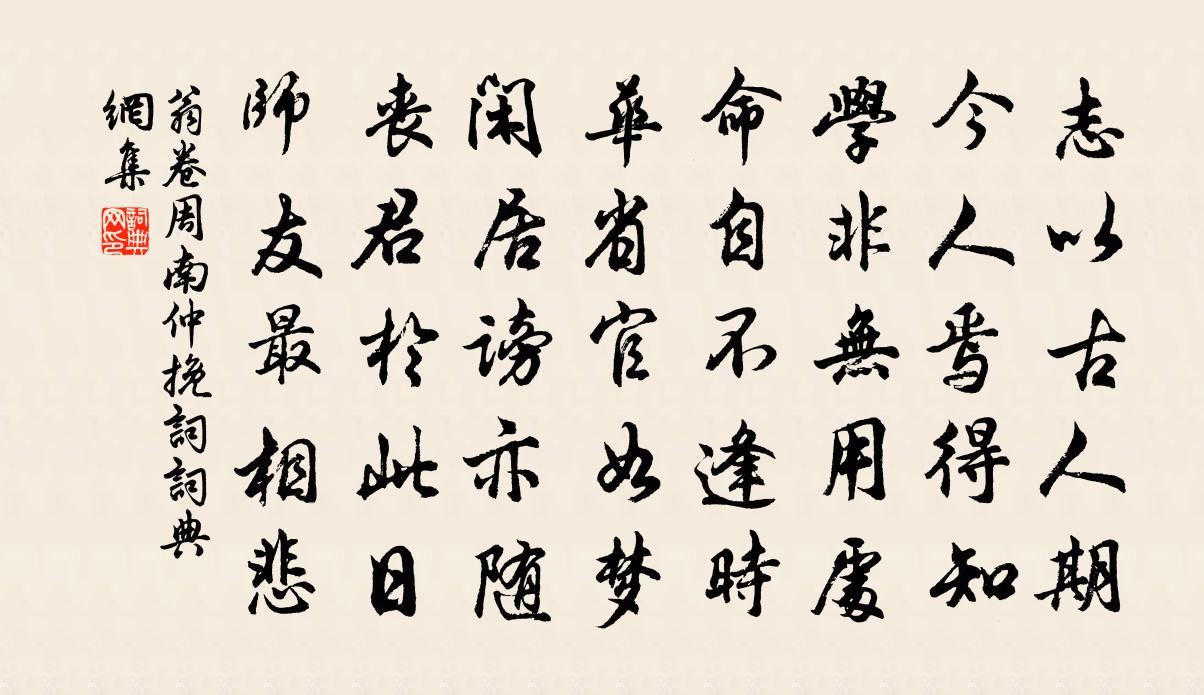 志以古人期
今人焉得知
學非無用處
命自不逢時
華省官如梦
閑居謗亦随
丧君於此日
師友最相悲
翁卷周南仲挽詞詞典
網集
詞典网印